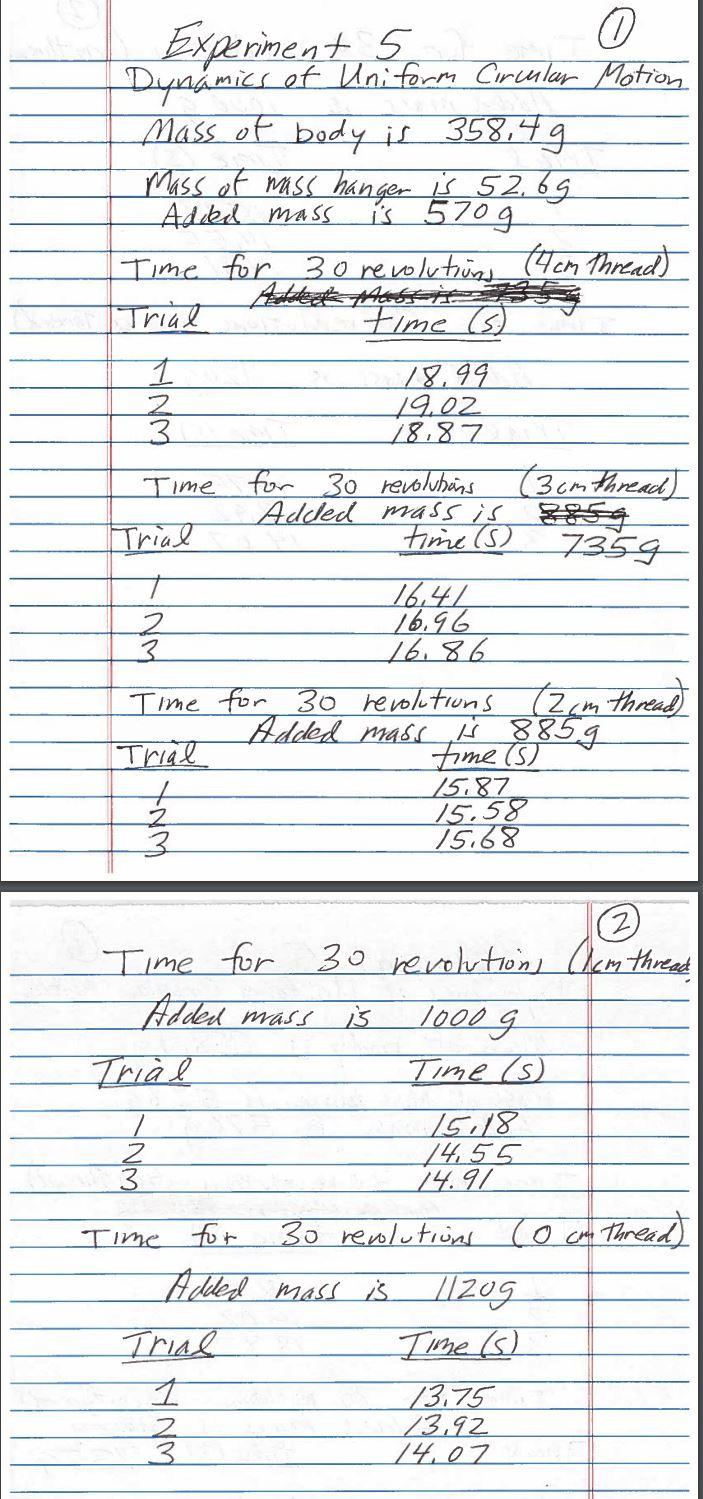 1
Experiment 5
Dynamics of Uniform Circular Motion
Mass of body is 358.4g
Mass of mass hanger is 52.6g
Added mass is 570g
Time for 30 revolutions (4cm thread)
Added Mass is 735g
Trial time (s)
1 18.99
2 19.02
3 18.87
Time for 30 revolutions (3cm thread)
Added mass is 885g
Trial time (s) 735g
1 16.41
2 16.96
3 16.86
Time for 30 revolutions (2cm thread)
Added mass is 885g
Trial time (s)
1 15.87
2 15.58
3 15.68
2
Time for 30 revolutions (1cm thread
Added mass is 1000g
Trial Time (s)
1 15.18
2 14.55
3 14.91
Time for 30 revolutions (0 cm thread)
Added mass is 1120g
Trial Time (s)
1 13.75
2 13.92
3 14.07